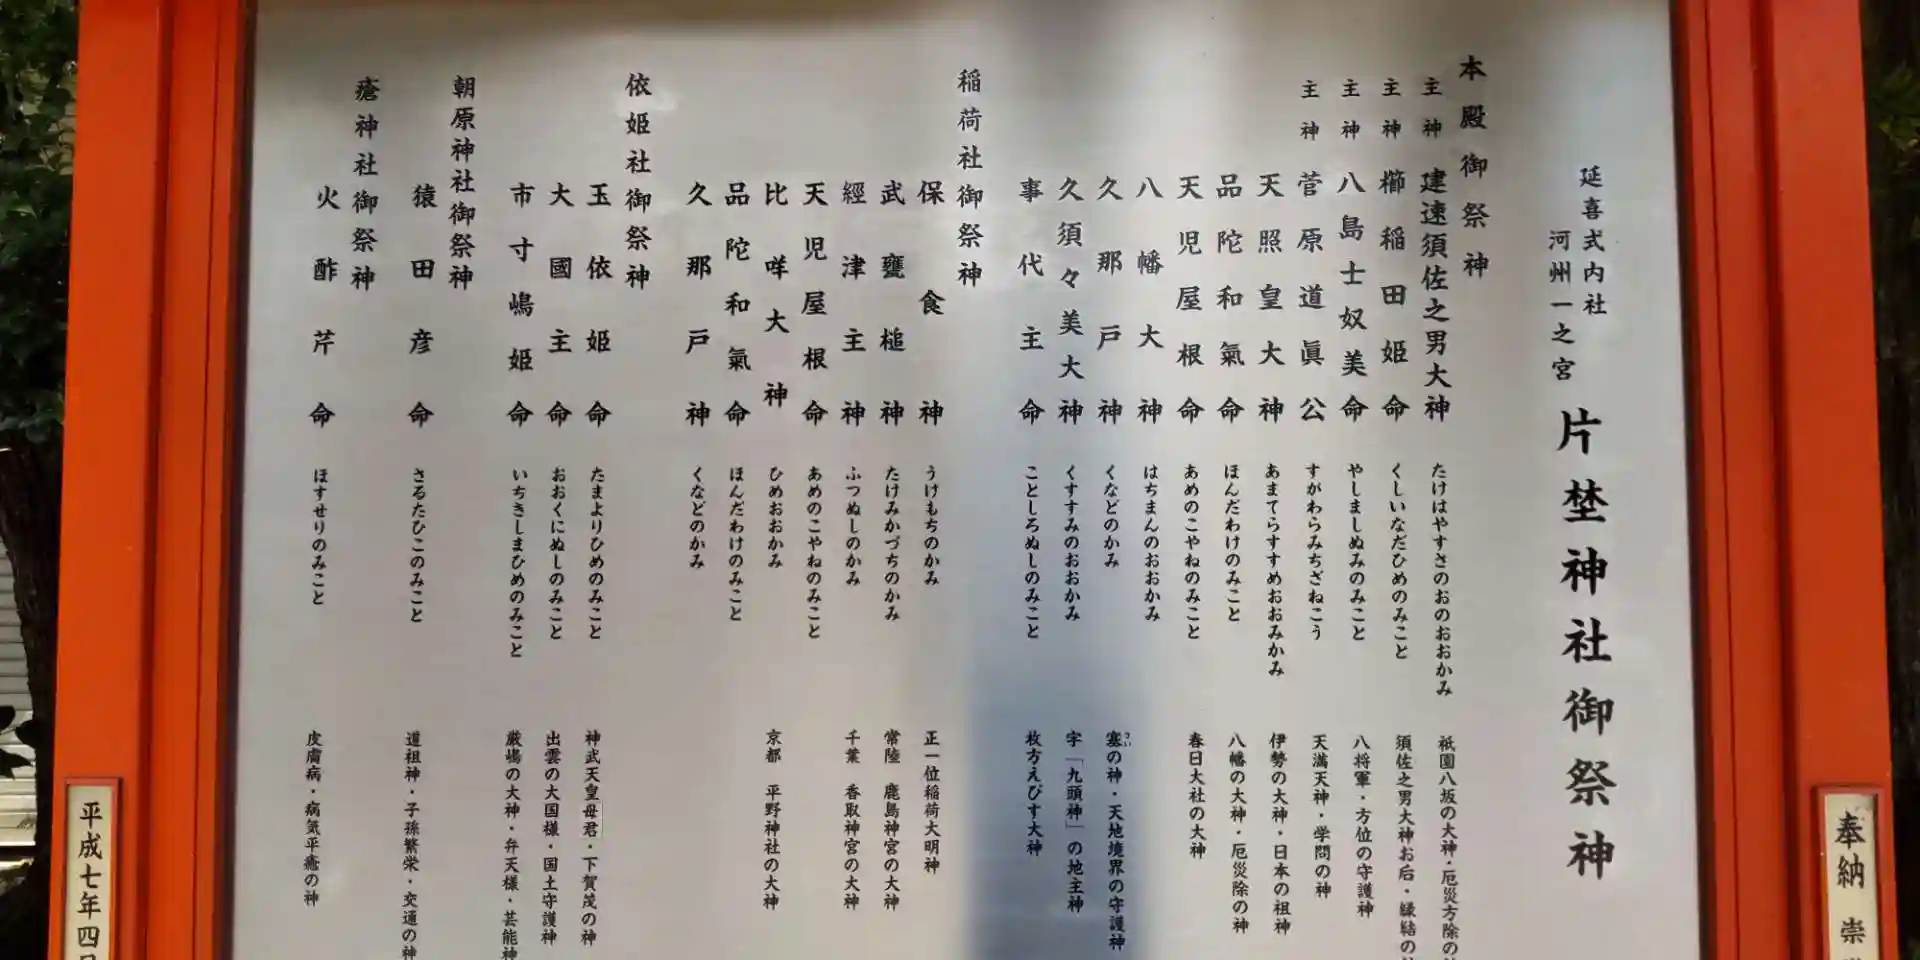 延喜式内社
河州一之宮
片埜神社御祭神
本殿御祭神
主神 建速須佐之男大神 たけはやすさのおのおおかみ 祇園八坂の大神・厄災方除の
主神 櫛稲田姫命 くしいなだひめのみこと 須佐之男大神お后・縁結の
主神 八島士奴美命 やしましぬみのみこと 八将軍・方位の守護神
主神 菅原道眞公 すがわらみちざねこう 天満天神・学問の神
天照皇大神 あまてらすすめおおみかみ 伊勢の大神・日本の祖神
品陀和氣命 ほんだわけのみこと 八幡の大神・厄災除の神
天児屋根命 あめのこやねのみこと 春日大社の大神
八幡大神 はちまんのおおかみ
久那戸神 くなどのかみ 塞の神・天地境界の守護神
さい
久須々美大神 くすすみのおおかみ 字「九頭神」の地主神
事代主命 ことしろぬしのみこと 枚方えびす大神
稲荷社御祭神
保食神 うけもちのかみ 正一位稲荷大明神
武甕槌神 たけみかづちのかみ 常陸 鹿島神宮の大神
經津主神 ふつぬしのかみ 千葉 香取神宮の大神
天児屋根命 あめのこやねのみこと
比咩大神 ひめおおかみ 京都 平野神社の大神
品陀和氣命 ほんだわけのみこと
久那戸神 くなどのかみ
依姫社御祭神
玉依姫命 たまよりひめのみこと 神武天皇母君・下賀茂の神
大國主命 おおくにぬしのみこと 出雲の大国様・国土守護神
市寸嶋姫命 いちきしまひめのみこと 厳嶋の大神・弁天様・芸能神
朝原神社御祭神
猿田彦命 さるたひこのみこと 道祖神・子孫繁栄・交通の神
瘡神社御祭神
火酢芹命 ほすせりのみこと 皮膚病・病気平癒の神
奉納 崇
平成七年四